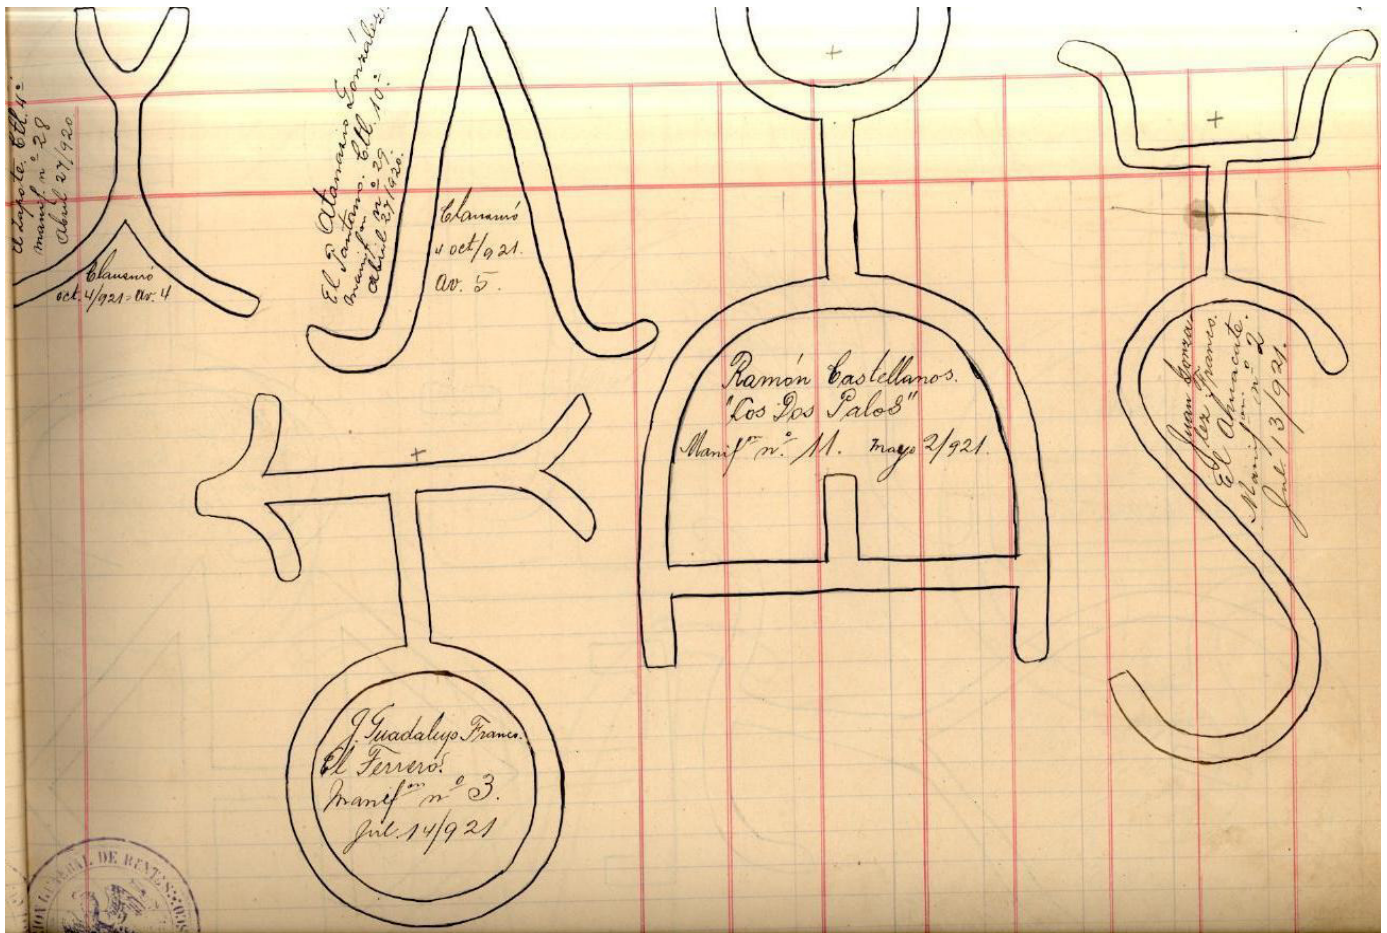 El Zapote. Ctl. 4º
manifon nº 28
Abril 27/920
Clausuró
oct. 4/921 = Av. 4
El Sr. Atanacio González
El Pantano. Ctl. 10º
manifon nº 29
Abril 27/920.
Clausuró
4 oct/921.
Av. 5.
Ramón Castellanos.
"Los Dos Palos"
Manifon nº 11. mayo 2/921.
Juan Gonzá-
lez Franco.
El Ahuacate.
Manifon nº 2
Jul. 13/921.
J. Guadalupe Franco.
El Ferrero.
Manifon nº 3.
Jul. 14/921
GENERAL DE RENTAS